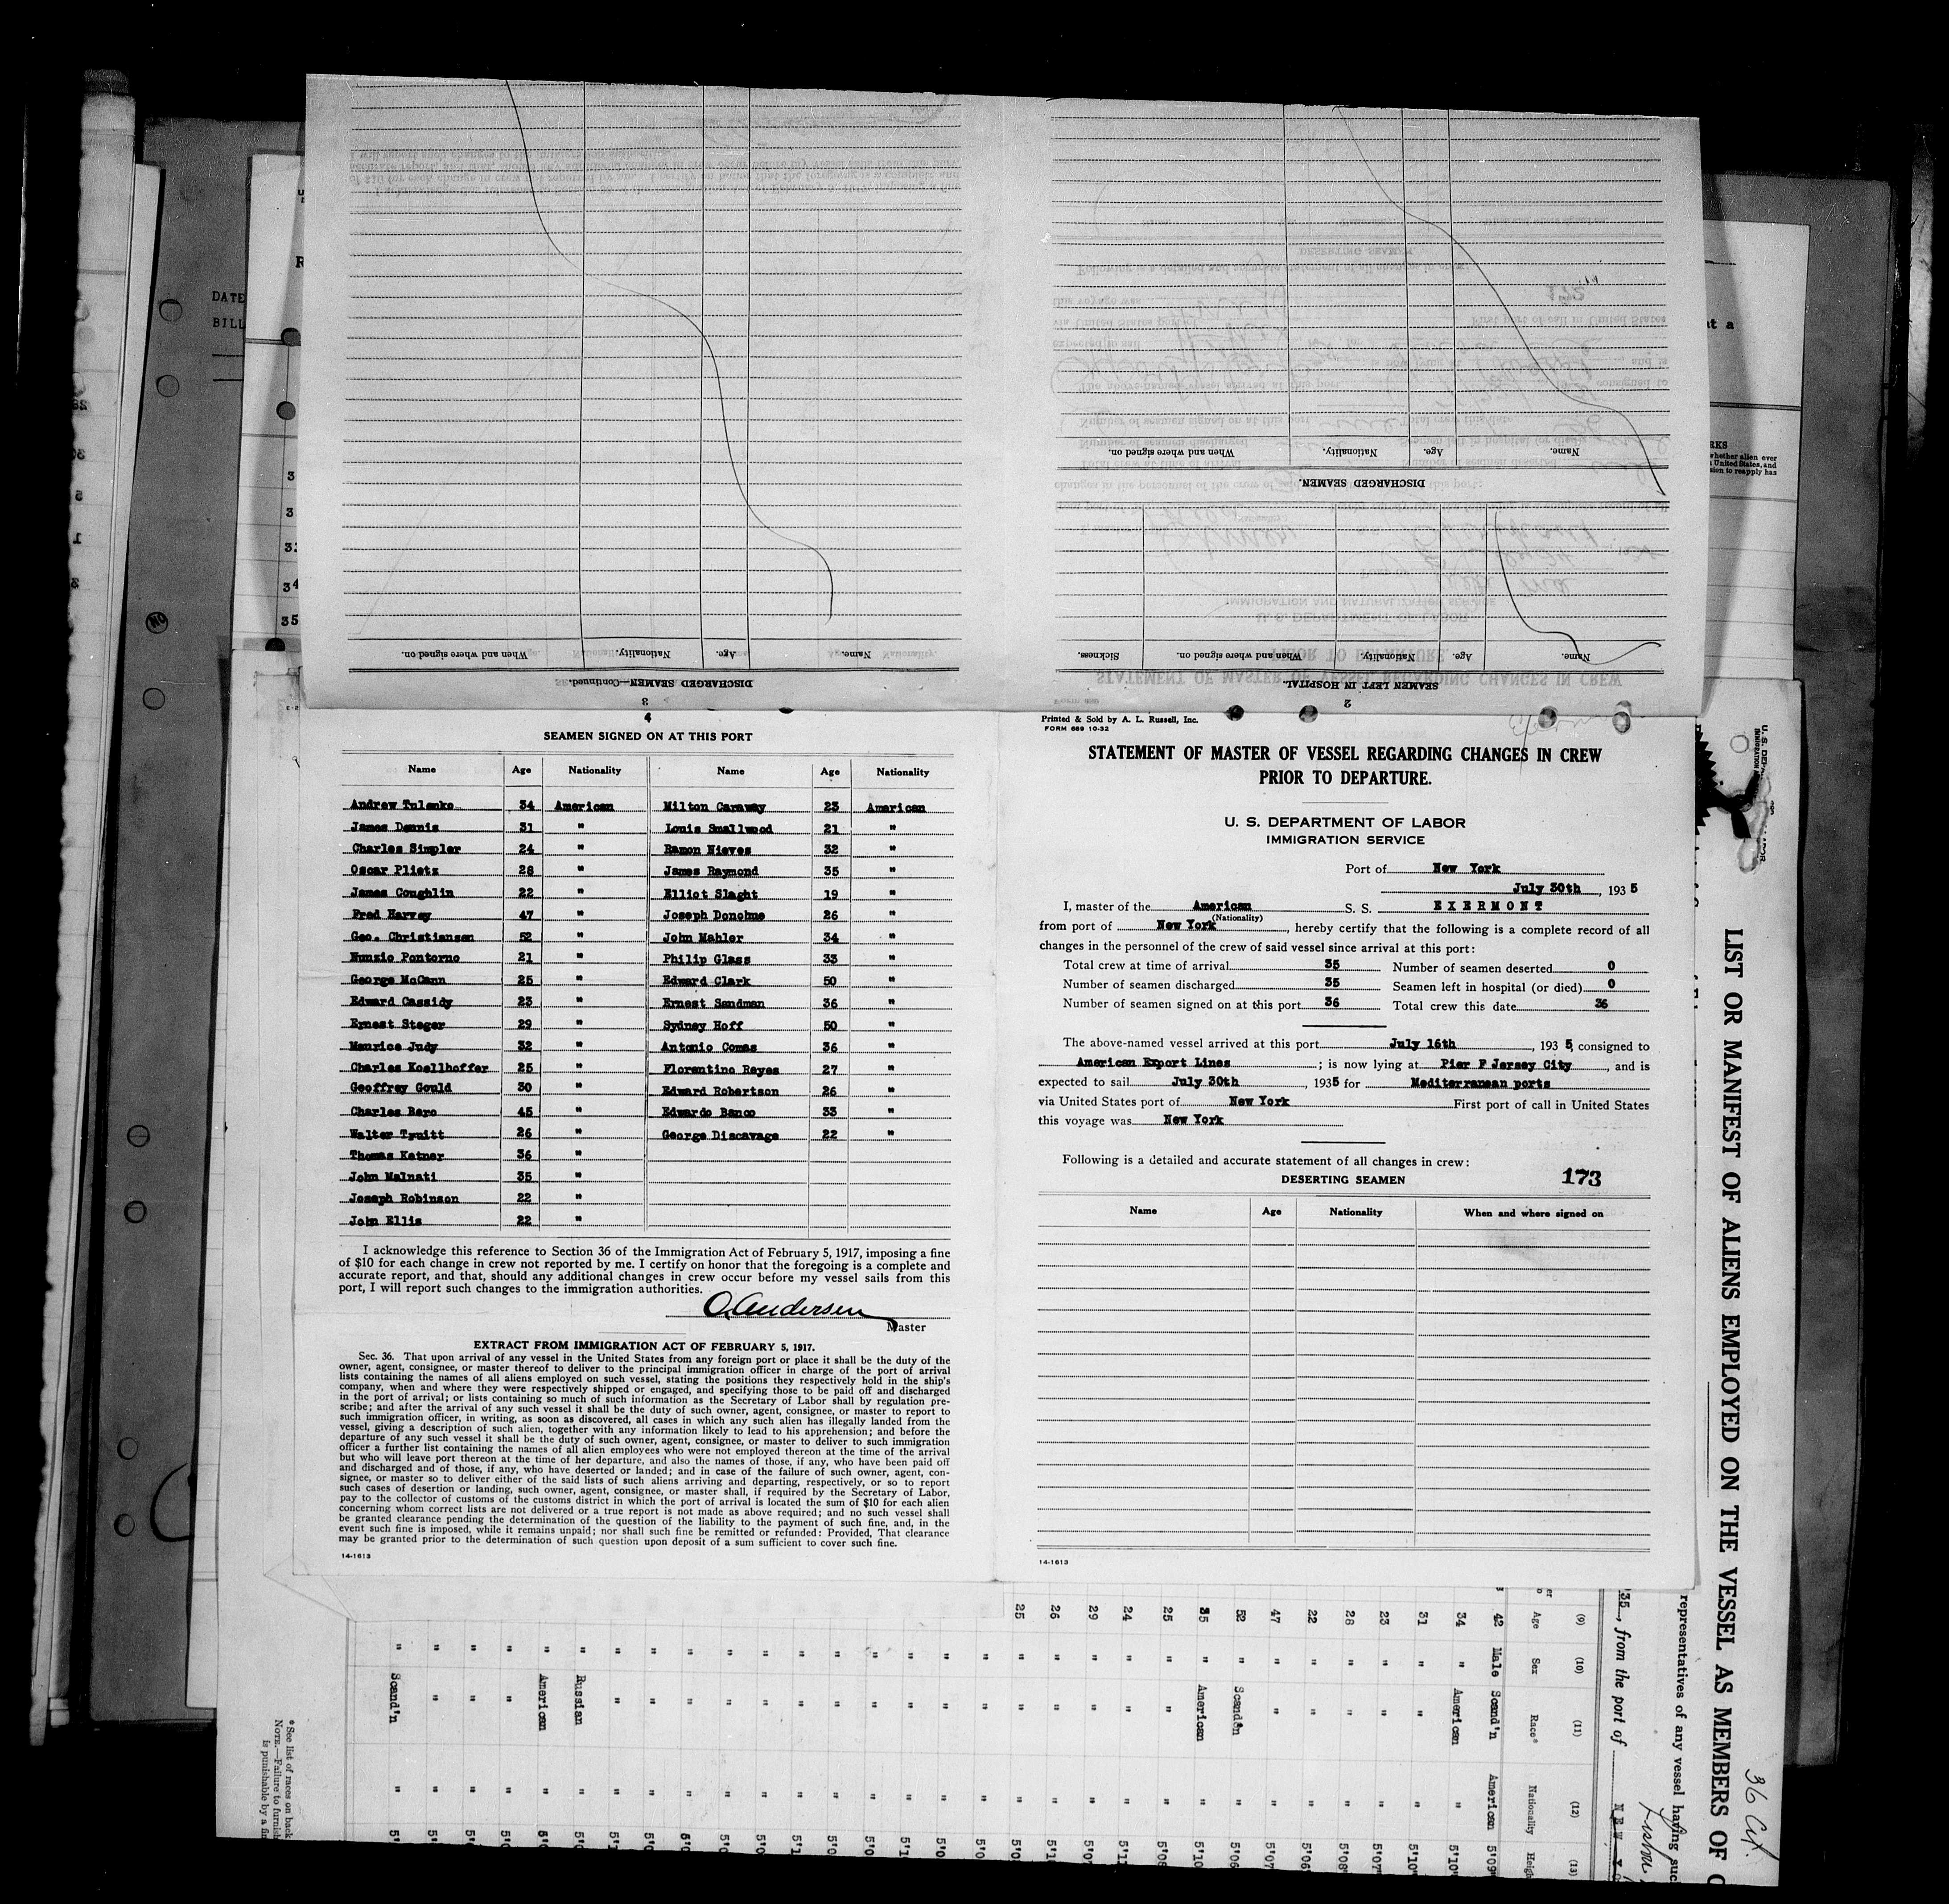 4
SEAMEN SIGNED ON AT THIS PORT
Name Age Nationality Name Age Nationality
Andrew Tulenko 34 American Milton Caraway 23 American
James Dennis 31 " Louis Smallwood 21 "
Charles Simpler 24 " Ramon Nieves 32 "
Oscar Plietz 28 " James Raymond 35 "
James Coughlin 22 " Elliot Slaght 19 "
Fred Harvey 47 " Joseph Donohue 26 "
Geo. Christiansen 52 " John Mahler 34 "
Nunzio Pontorno 21 " Philip Glass 33 "
George McCann 25 " Edward Clark 50 "
Edward Cassidy 23 " Ernest Sandman 36 "
Ernest Steger 29 " Sydney Hoff 50 "
Maurice Judy 32 " Antonio Comas 36 "
Charles Koellhoffer 25 " Florentino Reyes 27 "
Geoffrey Gould 30 " Edward Robertson 26 "
Charles Bero 45 " Edwardo Banco 33 "
Walter Tyuitt 26 " George Discavage 22 "
Thomas Katner 36 "
John Malnati 35 "
Joseph Robinson 22 "
John Ellis 22 "
I acknowledge this reference to Section 36 of the Immigration Act of February 5, 1917, imposing a fine
of $10 for each change in crew not reported by me. I certify on honor that the foregoing is a complete and
accurate report, and that, should any additional changes in crew occur before my vessel sails from this
port, I will report such changes to the immigration authorities.
O. Andersen
Master
EXTRACT FROM IMMIGRATION ACT OF FEBRUARY 5, 1917.
Sec. 36. That upon arrival of any vessel in the United States from any foreign port or place it shall be the duty of the
owner, agent, consignee, or master thereof to deliver to the principal immigration officer in charge of the port of arrival
lists containing the names of all aliens employed on such vessel, stating the positions they respectively hold in the ship's
company, when and where they were respectively shipped or engaged, and specifying those to be paid off and discharged
in the port of arrival; or lists containing so much of such information as the Secretary of Labor shall by regulation pre-
scribe; and after the arrival of any such vessel it shall be the duty of such owner, agent, consignee, or master to report to
such immigration officer, in writing, as soon as discovered, all cases in which any such alien has illegally landed from the
vessel, giving a description of such alien, together with any information likely to lead to his apprehension; and before the
departure of any such vessel it shall be the duty of such owner, agent, consignee, or master to deliver to such immigration
officer a further list containing the names of all alien employees who were not employed thereon at the time of the arrival
but who will leave port thereon at the time of her departure, and also the names of those, if any, who have been paid off
and discharged and of those, if any, who have deserted or landed; and in case of the failure of such owner, agent, con-
signee, or master so to deliver either of the said lists of such aliens arriving and departing, respectively, or so to report
such cases of desertion or landing, such owner, agent, consignee, or master shall, if required by the Secretary of Labor,
pay to the collector of customs of the customs district in which the port of arrival is located the sum of $10 for each alien
concerning whom correct lists are not delivered or a true report is not made as above required; and no such vessel shall
be granted clearance pending the determination of the question of the liability to the payment of such fine, and, in the
event such fine is imposed, while it remains unpaid; nor shall such fine be remitted or refunded: Provided, That clearance
may be granted prior to the determination of such question upon deposit of a sum sufficient to cover such fine.
14-1613
Printed & Sold by A. L. Russell, Inc.
FORM 689 10-32
STATEMENT OF MASTER OF VESSEL REGARDING CHANGES IN CREW
PRIOR TO DEPARTURE.
U. S. DEPARTMENT OF LABOR
IMMIGRATION SERVICE
Port of New York
July 30th, 1935
I, master of the American S. S. EXERMONT
(Nationality)
from port of New York, hereby certify that the following is a complete record of all
changes in the personnel of the crew of said vessel since arrival at this port:
Total crew at time of arrival 35 Number of seamen deserted 0
Number of seamen discharged 35 Seamen left in hospital (or died) 0
Number of seamen signed on at this port 36 Total crew this date 36
The above-named vessel arrived at this port July 16th, 1935, consigned to
American Export Lines; is now lying at Pier F Jersey City, and is
expected to sail July 30th, 1935 for Mediterranean ports
via United States port of New York First port of call in United States
this voyage was New York
Following is a detailed and accurate statement of all changes in crew:
173
DESERTING SEAMEN
Name Age Nationality When and where signed on
14-1613
DISCHARGED SEAMEN—Continued.
Name. Age. Nationality. When and where signed on.
3
2
SEAMEN LEFT IN HOSPITAL.
Name. Age. Nationality. When and where signed on. Sickness.
DISCHARGED SEAMEN.
Name. Age. Nationality. When and where signed on.
LIST OR MANIFEST OF ALIENS EMPLOYED ON THE VESSEL AS MEMBERS OF
representatives of any vessel having
35, from the port of NEW
(9) (10) (11) (12) (13)
Age Sex Race* Nationality
42 Male Scand'n American 5'09"
34 " American "
31 " " "
23 " " "
28 " " "
22 " " "
47 " " "
52 " Scandn "
35 " American "
25 " " "
24 " " "
29 " " "
26 " " "
25 " " "
Russian
American
Scand'n
* See list of races on back
NOTE.—Failure to furnish
is punishable by a
36 Cit.
DATE
BILL